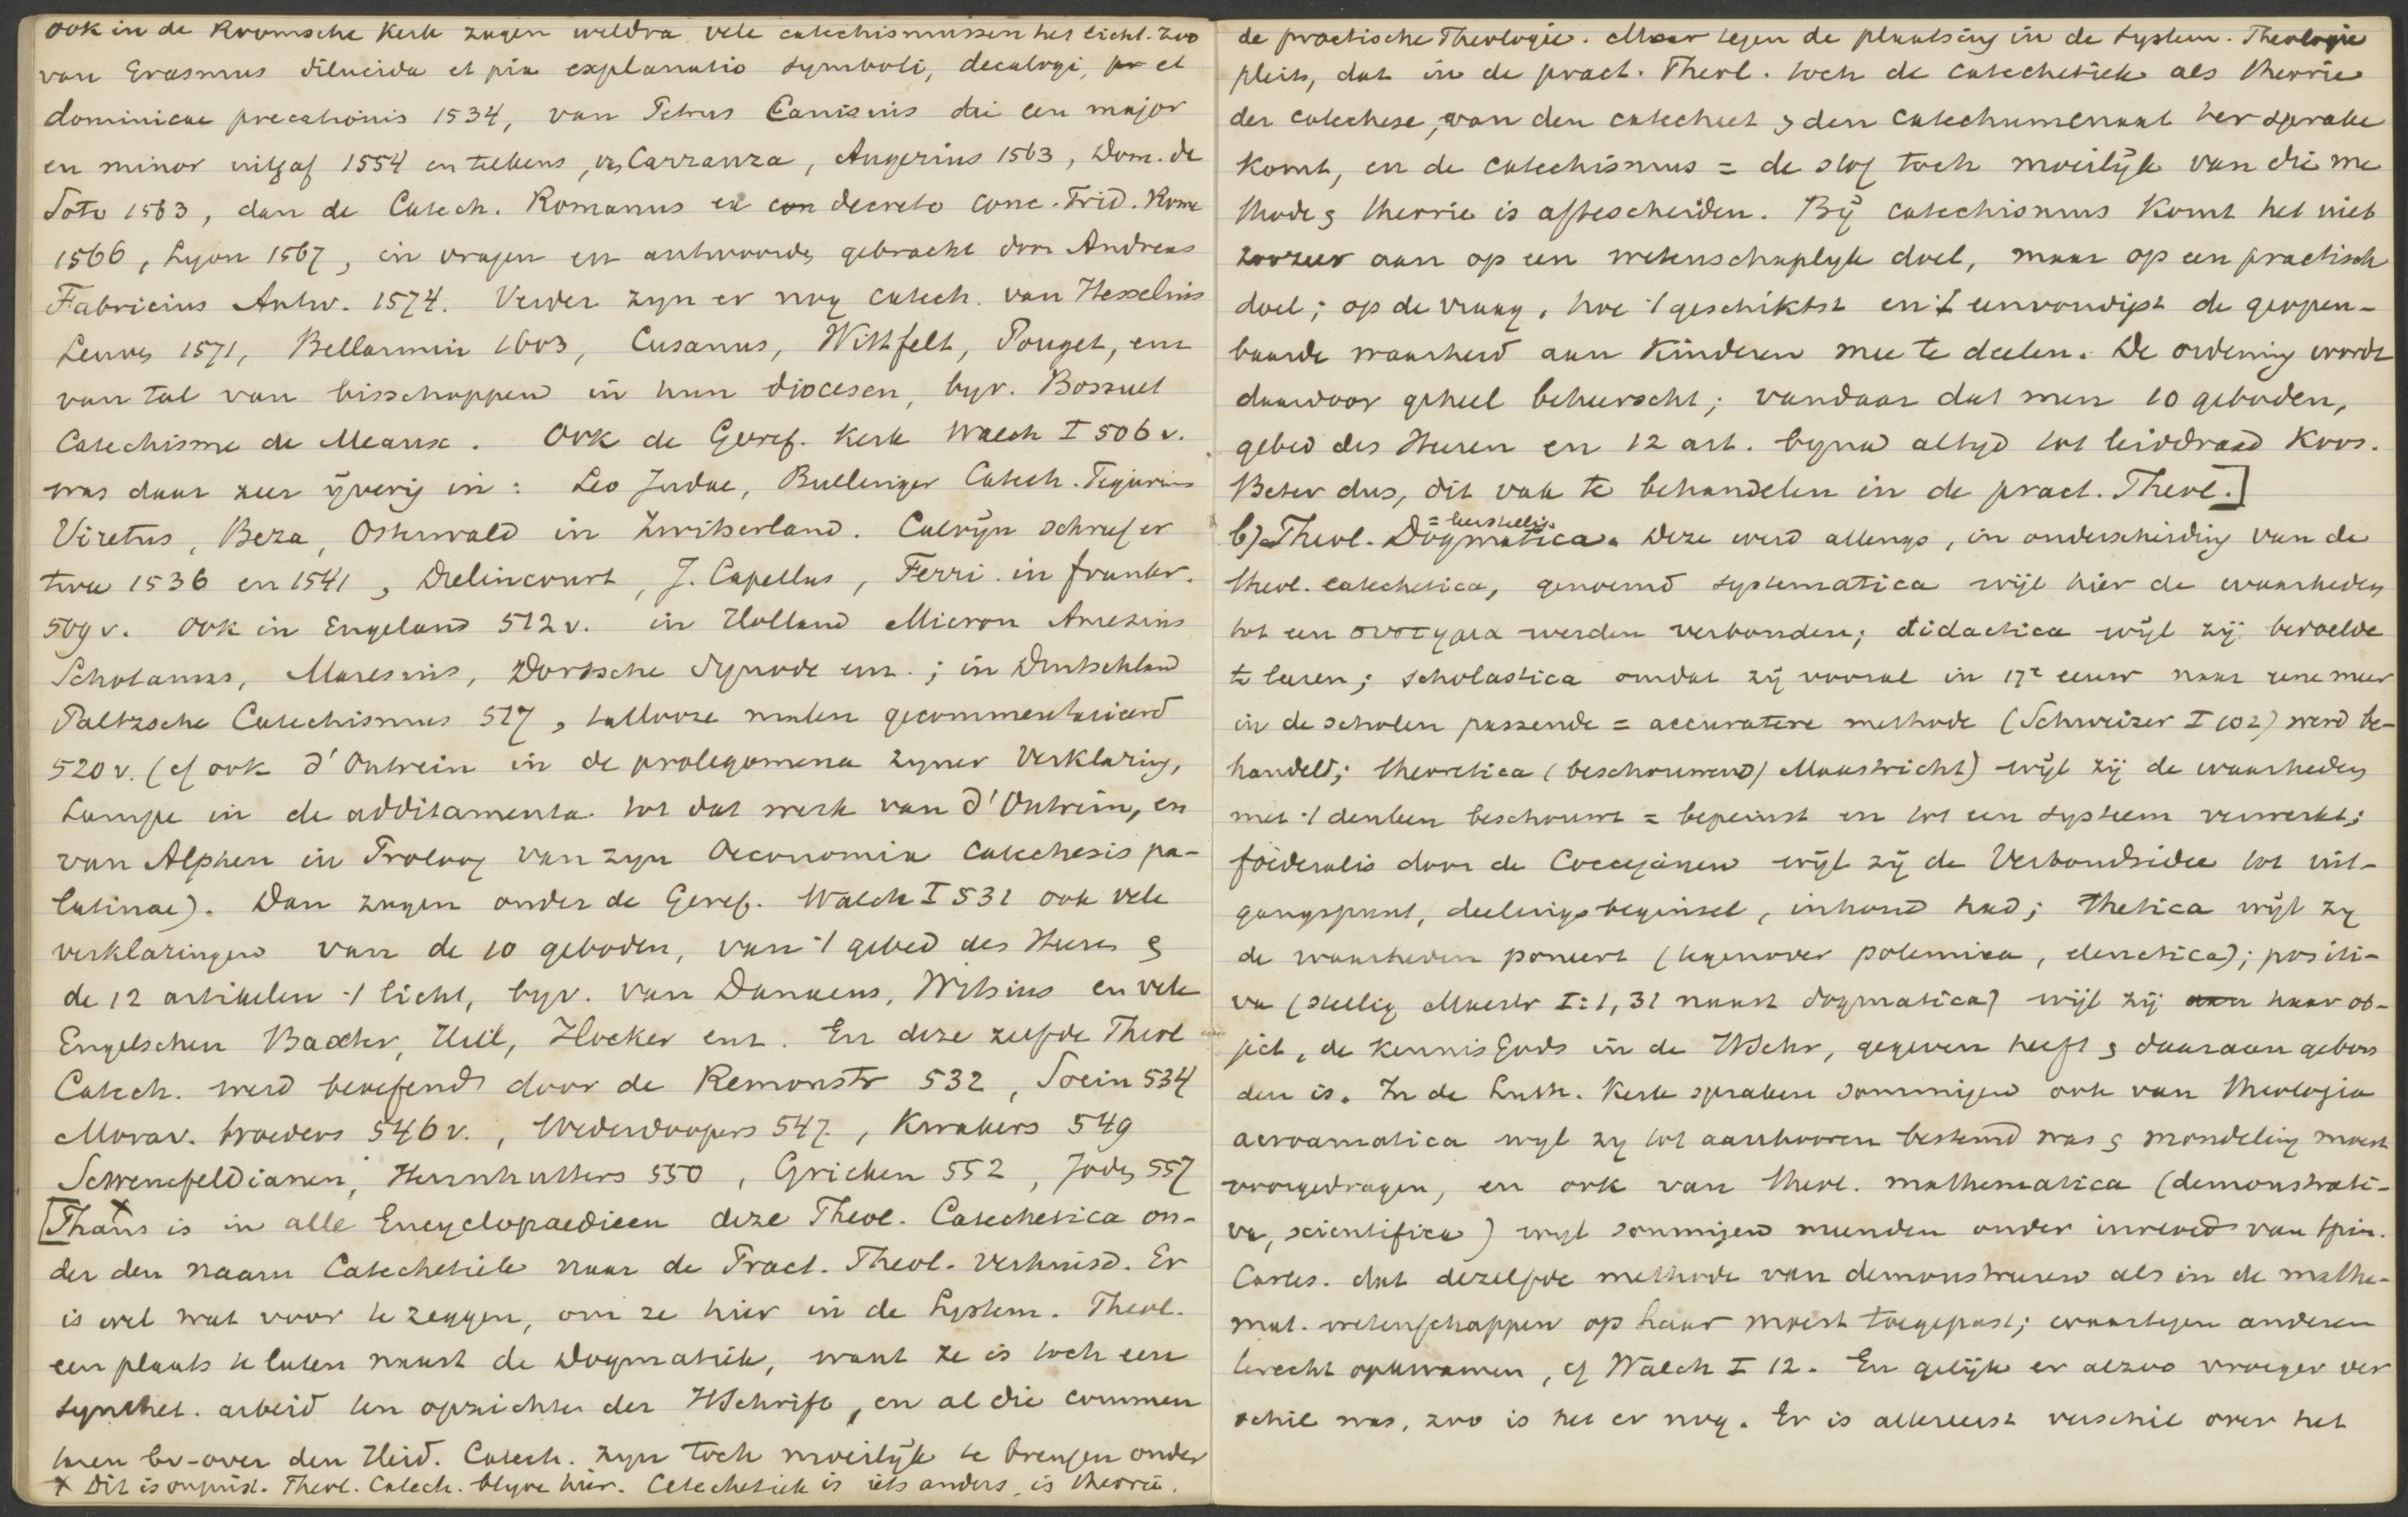 ook in de Roomsche Kerk zagen weldra vele catechismussen het licht. Zoo
van Erasmus dilucida et pia explanatio symboli, decalogi, et
dominicae precationis 1534, van Petrus Canisius die een major
en minor uitgaf 1554 en telkens, v. Carranza, Augerius 1563, Dom. de
Soto 1563, dan de Catech. Romanus ex decreto Conc. Trid. Rome
1566, Lyon 1567, in vragen en antwoorden gebracht door Andreas
Fabricius Antw. 1574. Verder zyn er nog catech. van Hesselius
Leuven 1571, Bellarmin 1603, Cusanus, Withfelt, Pouget, enz
van tal van bisschoppen in hun diocesen, byv. Bossuet
Catechisme de Meaux. Ook de Geref. Kerk Walch I 506 v.
was daar zeer ijverig in: Leo Judae, Bullinger Catech. Tigurinus
Viretus, Beza, Osterwald in Zwitserland. Calvijn schreef er
twee 1536 en 1541, Drelincourt, J. Capellus, Ferri in frankr.
509 v. Ook in Engeland 512 v. in Holland Micron Amesius
Schotanus, Maresius, Dordsche Synode enz.; in Duitschland
Paltzsche Catechismus 517, tallooze malen gecommentarieerd
520 v. (cf ook d'Outrein in de prolegomena zyner Verklaring,
Lampe in de additamenta tot dat werk van d'Outrein, en
van Alphen in Proloog van zyn Oeconomia catechesis pa-
latinae). Dan zagen onder de Geref. Walch I 531 ook vele
verklaringen van de 10 geboden, van 't gebed des Heeren &
de 12 artikelen 't licht, byv. van Danaeus, Witsius en vele
Engelschen Baxter, Hill, Hooker enz. En deze zelfde Theol
Catech. werd beoefend door de Remonstr 532, Socin 534
Morav. broeders 546 v., Wederdoopers 547, Kwakers 549
Schwenefeldianen, Hernhutters 550, Grieken 552, Joden 557
[Thans x is in alle Encyclopaedieen deze Theol. Catechetica on-
der den naam Catechetiek naar de Pract. Theol. verhuisd. Er
is wel wat voor te zeggen, om ze hier in de System. Theol.
een plaats te laten naast de Dogmatiek, want ze is toch een
synthet. arbeid ten opzichte der HSchrift, en al die commen
taren bv. over den Heid. Catech. zyn toch moeilijk te brengen onder
x Dit is onjuist. Theol. Catech. blyve hier. Catechetiek is iets anders, is theorie.
de practische Theologie. Maar tegen de plaatsing in de System. Theologie
pleit, dat in de pract. Theol. toch de catechetiek als theorie
der catechese, van den catecheet & den catechumenaat ter sprake
komt, en de catechismus = de stof toch moeilijk van die me
thode & theorie is aftescheiden. Bij catechismus komt het niet
zoozeer aan op een wetenschaplyk doel, maar op een practisch
doel; op de vraag, hoe 't geschiktst en 't eenvoudigst de geopen-
baarde waarheid aan Kinderen mee te deelen. De ordening wordt
daardoor geheel beheerscht; vandaar dat men 10 geboden,
gebed des Heeren en 12 art. byna altyd tot leiddraad koos.
Beter dus, dit vak te behandelen in de pract. Theol.]
= leerstellig.
b) Theol. Dogmatica. Deze werd allengs, in onderscheiding van de
theol. catechetica, genoemd systematica wijl hier de waarheden
tot een συστημα werden verbonden; didactica wijl zij bedoelde
te leeren; scholastica omdat zij vooral in 17e eeuw naar eene meer
in de scholen passende = accuratere methode (Schweizer I 102) werd be-
handeld; theoretica (beschouwend, Maastricht) wijl zij de waarheden
met 't denken beschouwt = bepeinst en tot een systeem verwerkt;
foederalis door de Coccejanen wijl zij de Verbondsidee tot uit-
gangspunt, deelingsbeginsel, inhoud had; thetica wijl zij
de waarheden poneert (tegenover polemica, elenctica); positi-
va (stellig Maestr I:1, 31 naast dogmatica) wijl zij haar ob-
ject, de kennis Gods in de HSchr, gegeven heeft & daaraan gebon
den is. In de Luth. Kerk spraken sommigen ook van theologia
acroamatica wyl zy tot aanhooren bestemd was & mondeling moest
voorgedragen, en ook van theol. mathematica (demonstrati-
va, scientifica) wyl sommigen meenden onder invloed van Spin.
Cartes. dat dezelfde methode van demonstreeren als in de mathe-
mat. wetenschappen op haar moest toegepast; waartegen anderen
terecht opkwamen, cf Walch I 12. En gelijk er alzoo vroeger ver
schil was, zoo is het er nog. Er is allereerst verschil over het